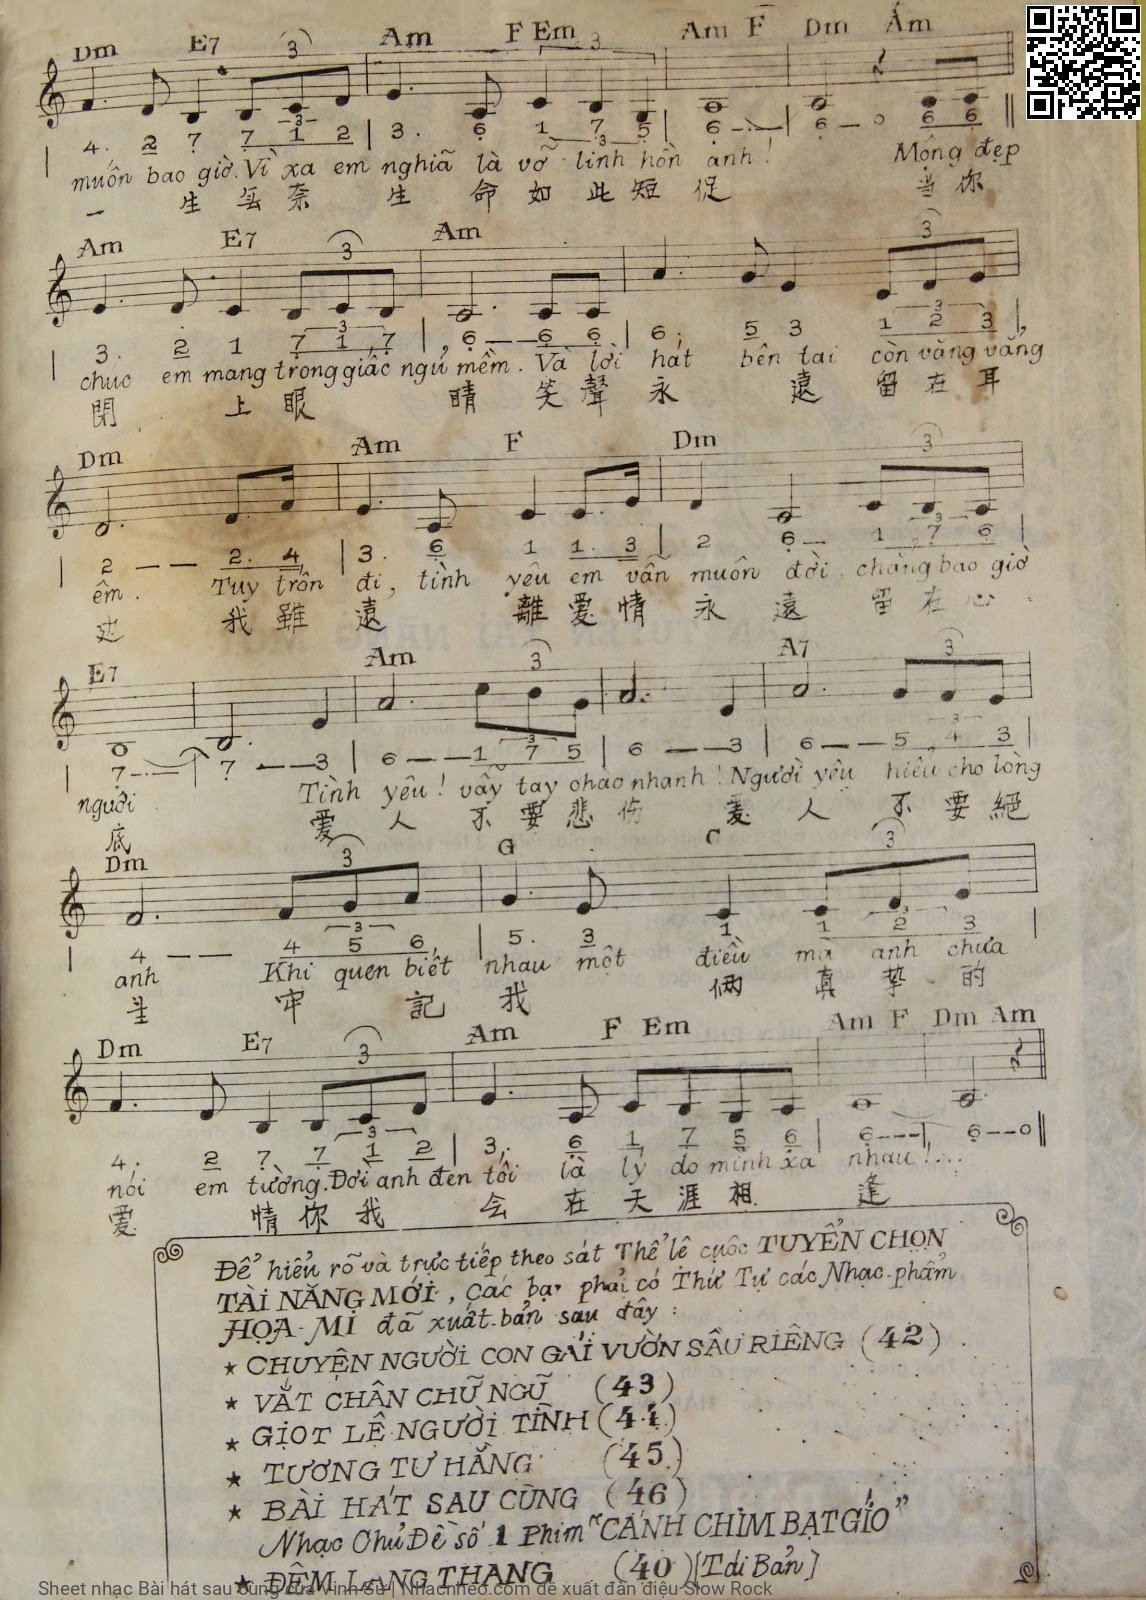 Dm E7 3 Am F Em 3 Am F Dm Am
4. 2 7 7 1 2 | 3. 6 1 7 5 | 6 - . - | 6 - 0 6 6 ||
muôn bao giờ. Vì xa em nghiã là vỡ linh hồn anh! Mộng đẹp
一 生 奈 生 命 如 此 短 促 当 你
Am E7 3 Am 3
3. 2 1 7 1 7 | 6 - - 6 6 | 6. 5 3 1 2 3 |
chúc em mang trong giấc ngủ mềm. Và lời hát bên tai còn văng vẳng
閉 上 眼 睛 笑 聲 永 遠 留 在 耳
Dm Am F Dm 3
2 - - 2. 4 | 3. 6 1 1. 3 | 2 6 - 1 7 6 |
êm. Tuy trốn đi, tình yêu em vẫn muôn đời, chẳng bao giờ
边 我 雖 遠 離 爱 情 永 遠 留 在 心
E7 Am 3 A7 3
7 - . - | 7 - - 3 | 6 - - 1 7 5 | 6 - - 3 | 6 - - 5 4 3 |
người Tình yêu! vẫy tay chào nhanh! Người yêu hiểu cho lòng
底 爱 人 不 要 悲 伤 爱 人 不 要 絕
Dm 3 G C 3
4 - - 4 5 6, | 5. 3 1 1 2 3 |
anh Khi quen biết nhau một điều mà anh chưa
牢 記 我 倆 真 挚 的
Dm E7 3 Am F Em Am F Dm Am
4. 2 7. 7 1 2 | 3. 6 1 7 5 6 | 6 - - - | 6 - - 0 ||
nói em tường. Đời anh đen tối là lý do mình xa nhau!...
爱 情 你 我 会 在 天 涯 相 逢
Để hiểu rõ và trực tiếp theo sát Thể lệ cuộc TUYỂN CHỌN
TÀI NĂNG MỚI, Các bạn phải có Thứ Tự các Nhạc-phẩm
HỌA-MI đã xuất-bản sau đây:
★ CHUYỆN NGƯỜI CON GÁI VƯỜN SẦU RIÊNG (42)
★ VẮT CHÂN CHỮ NGŨ (43)
★ GIỌT LỆ NGƯỜI TÌNH (44)
★ TƯƠNG TƯ HẰNG (45)
★ BÀI HÁT SAU CÙNG (46)
Nhạc Chủ Đề số 1 Phim "CÁNH CHIM BẠT GIÓ"
★ ĐÊM LANG THANG (40) [Tái Bản]
Sheet nhạc Bài hát sau cùng của Vinh Sử | Nhacnheo.com đề xuất đàn điệu Slow Rock